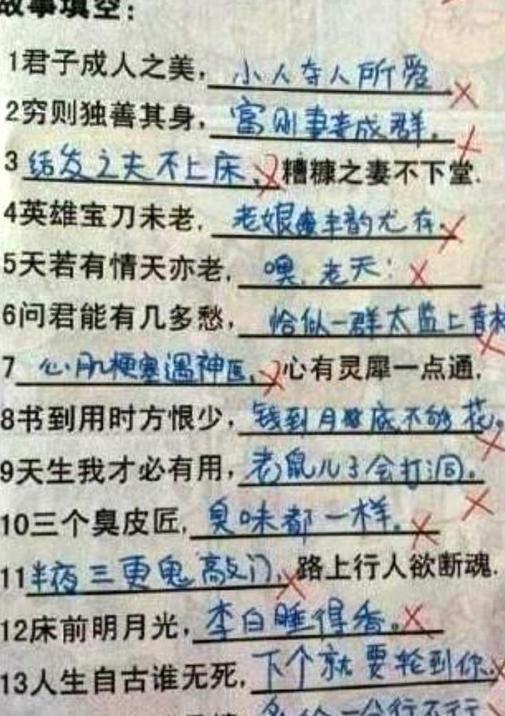 故事填空：
1君子成人之美，小人夺人所爱
2穷则独善其身，富则妻妾成群。
3结发之夫不上床，糟糠之妻不下堂.
4英雄宝刀未老，老娘丰韵尤存。
5天若有情天亦老，噢，老天！
6问君能有几多愁，恰似一群太监上青楼
7心肌梗塞遇神医，心有灵犀一点通.
8书到用时方恨少，钱到月底不够花。
9天生我才必有用，老鼠儿子会打洞。
10三个臭皮匠，臭味都一样。
11半夜三更鬼敲门，路上行人欲断魂.
12床前明月光，李白睡得香。
13人生自古谁无死，下个就要轮到你